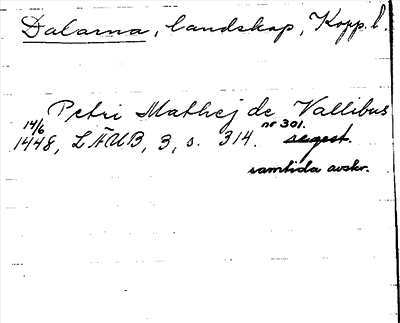 Dalarna, landskap, Kopp. l.
Petri Mathej de Vallibus
14/6 1448, LÄUB, 3, s. 314. nr 301. regest.
samtida avskr.